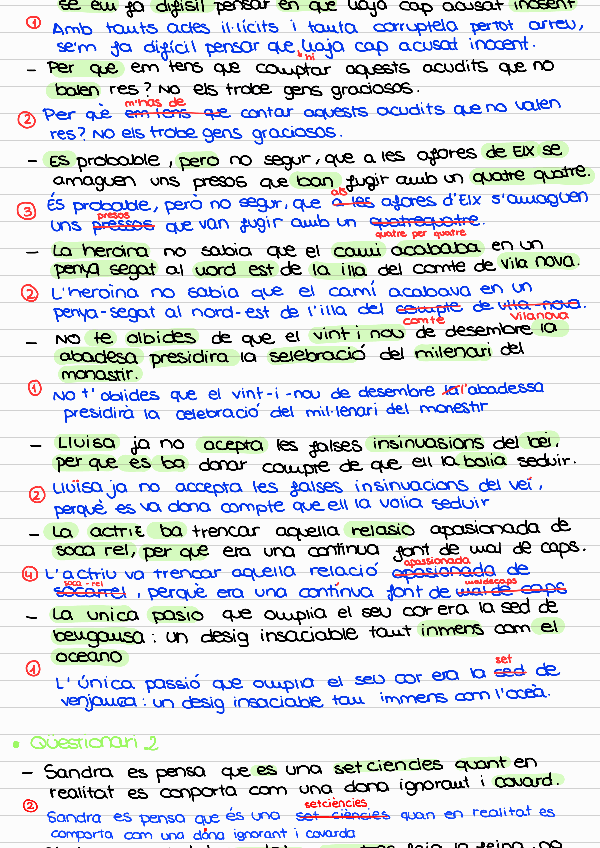 se'm fa difisil pensar en que vaja cap acusat inosent
① Amb tants actes il·lícits i tanta corruptela pertot arreu,
se'm fa difícil pensar que vaja cap acusat inocent.
hi
- Per que em tens que comptar aquests acudits que no
balen res? No els trobe gens graciosos.
m'has de
② Per què em tens que contar aquests acudits que no valen
res? No els trobe gens graciosos.
- Es probable, pero no segur, que a les afores de Elx se
amaguen uns presos que ban fugir amb un quatre quatre.
als
③ És probable, però no segur, que a les afores d'Elx s'amaguen
presos
uns pressos que van fugir amb un quatrequatre.
quatre per quatre
- La heroina no sabia que el cami acababa en un
penya segat al nord est de la illa del comte de vila nova.
② L'heroïna no sabia que el camí acabava en un
penya-segat al nord-est de l'illa del compte de vila-nova.
comte Vilanova
- No te olbides de que el vint i nou de desembre la
abadesa presidira la selebració del milenari del
monastir.
① No t'oblides que el vint-i-nou de desembre la l'abadessa
presidirà la celebració del mil·lenari del monestir
- Lluisa ja no acepta les falses insinuasions del bei,
per que es ba donar compte de que ell la bolia seduir.
② Lluïsa ja no accepta les falses insinuacions del veí,
perquè es va dona compte que ell la volia seduir
- La actriu ba trencar aquella relasio apasionada de
soca rel, per que era una continua font de mal de caps.
apassionada
④ L'actriu va trencar aquella relació apasionada de
soca-rel maldecaps
socarrel, perquè era una contínua font de mal de caps
- La unica pasio que omplia el seu cor era la sed de
bengansa: un desig insaciable tant inmens com el
oceano
set
① L'única passió que omplia el seu cor era la sed de
venjança: un desig insaciable tan immens com l'oceà.
• Qüestionari 2
- Sandra es pensa que es una set ciencies quant en
realitat es conporta com una dona ignorant i covard.
setciències
② Sandra es pensa que és una set ciències quan en realitat es
comporta com una dona ignorant i covarda